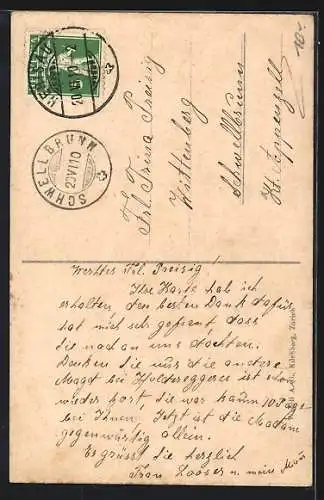 HELVETIA
SCHWELLBRUNN
20 VI 10
10.-
Frl. Trina Preisig
Wittenberg
Schwellbrunn
Kt. Appenzell
Werthes Frl. Preisig!
Ihre Karte hab ich
erhalten, den besten Dank dafür
hat mich sehr gefreut, dass
Sie nach an uns dachten.
Denken Sie nur die andere
Magd bei Holdereggers ist schon
wieder fort, sie war kaum 10 Tage
bei Ihnen. Jetzt ist die Madam
gegenwärtig allein.
Es grüsst Sie herzlich
Frau Looser u. mein Mann
Künzli A.-G., Kilchberg, Zürich